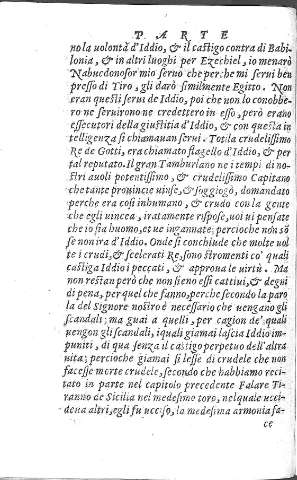 PARTE
no la uolontà d'Iddio, & il castigo contra di Babi-
lonia, & in altri luoghi per Ezechiel, io menarò
Nabucdonosor mio seruo che perche mi seruì ben
presso di Tiro, gli darò similmente Egitto. Non
eran questi serui de Iddio, poi che non lo conobbe-
ro ne seruirono ne credettero in esso, però erano
essecutori della giustitia d'Iddio, & con questa in
telligenza si chiamauan serui. Totila crudelissimo
Re de Gotti, era chiamato flagello d'Iddio, & per
tal reputato. Il gran Tamburlano ne i tempi di no-
stri auoli potentissimo, & crudelissimo Capitano
che tante prouincie uinse, & soggiogò, domandato
perche era cosi inhumano, & crudo con la gente
che egli uincea, iratamente rispose, uoi ui pensate
che io sia huomo, et ue ingannate; percioche non sō
se non ira d'Iddio. Onde si conchiude che molte uol
te i crudi, & scelerati Re, sono stromenti co' quali
castiga Iddio i peccati, & approua le uirtù. Ma
non restan però che non sieno essi cattiui, & degni
di pena, per quel che fanno, perche secondo la paro
la del Signore nostro è necessario che uengano gli
scandali; ma guai a quelli, per cagion de' quali
uengon gli scandali, i quali giamai lascia Iddio im-
puniti, di qua senza il castigo perpetuo dell'altra
uita; percioche giamai si lesse di crudele che non
facesse morte crudele, secondo che habbiamo reci-
tato in parte nel capitolo precedente Falare Ti-
ranno de Sicilia nel medesimo toro, nel quale ucci-
deua altri, egli fu ucciso, la medesima armonia fa-
ce